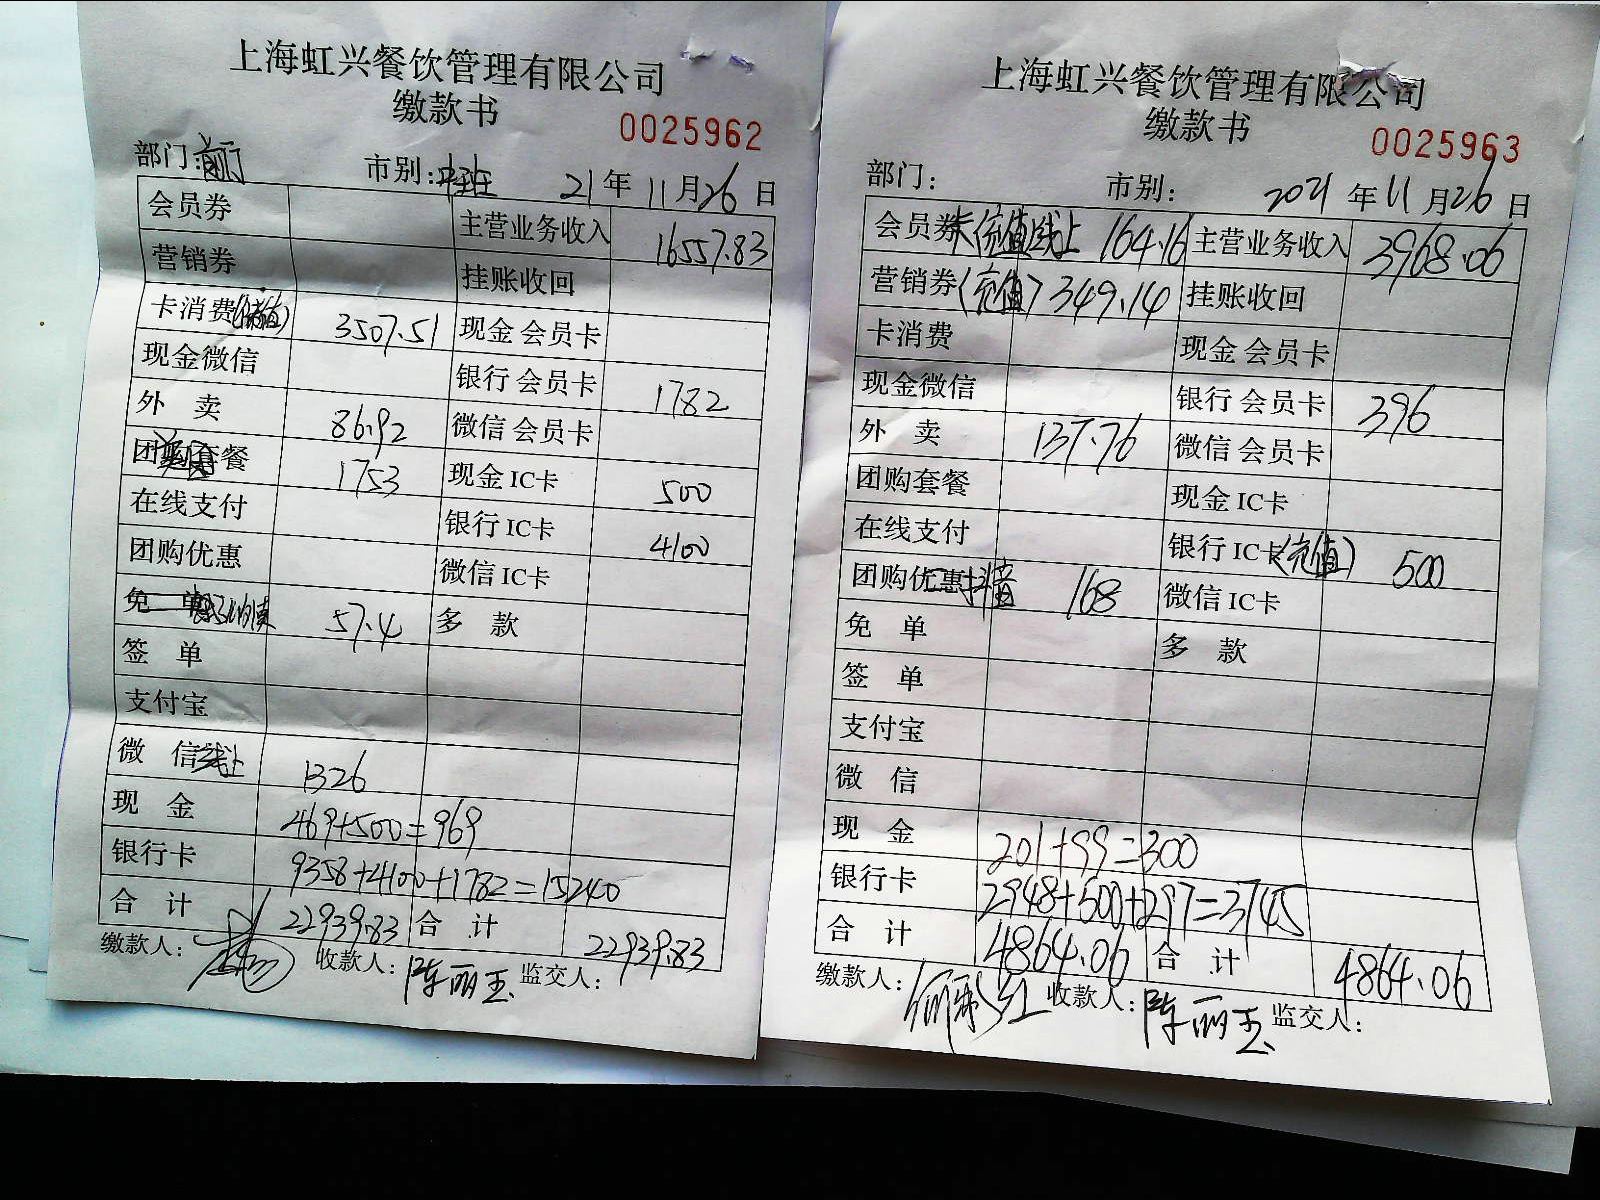 上海虹兴餐饮管理有限公司
缴款书
0025962
部门:前厅 市别: 21年11月26日
会员券 主营业务收入 16557.83
营销券 挂账收回
卡消费(储值) 3507.51 现金会员卡
现金微信 银行会员卡 1782
外 卖 86.92 微信会员卡
团购套餐 1753 现金IC卡 500
在线支付 银行IC卡 4100
团购优惠 微信IC卡
免 单 57.4 多 款
签 单
支付宝
微 信线上 1326
现 金 469+500=969
银行卡 9358+4100+1782=15240
合 计 22939.83 合 计 22939.83
缴款人: 收款人:陈丽玉 监交人:
上海虹兴餐饮管理有限公司
缴款书
0025963
部门: 市别: 2021年11月26日
会员券 充值线上 164.16 主营业务收入 3968.06
营销券(充值) 349.14 挂账收回
卡消费 现金会员卡
现金微信 银行会员卡 396
外 卖 137.76 微信会员卡
团购套餐 现金IC卡
在线支付 银行IC卡(充值) 500
团购优惠抖音 168 微信IC卡
免 单 多 款
签 单
支付宝
微 信
现 金 201+99=300
银行卡 2948+500+297=3745
合 计 4864.06 合 计 4864.06
缴款人: 收款人:陈丽玉 监交人: